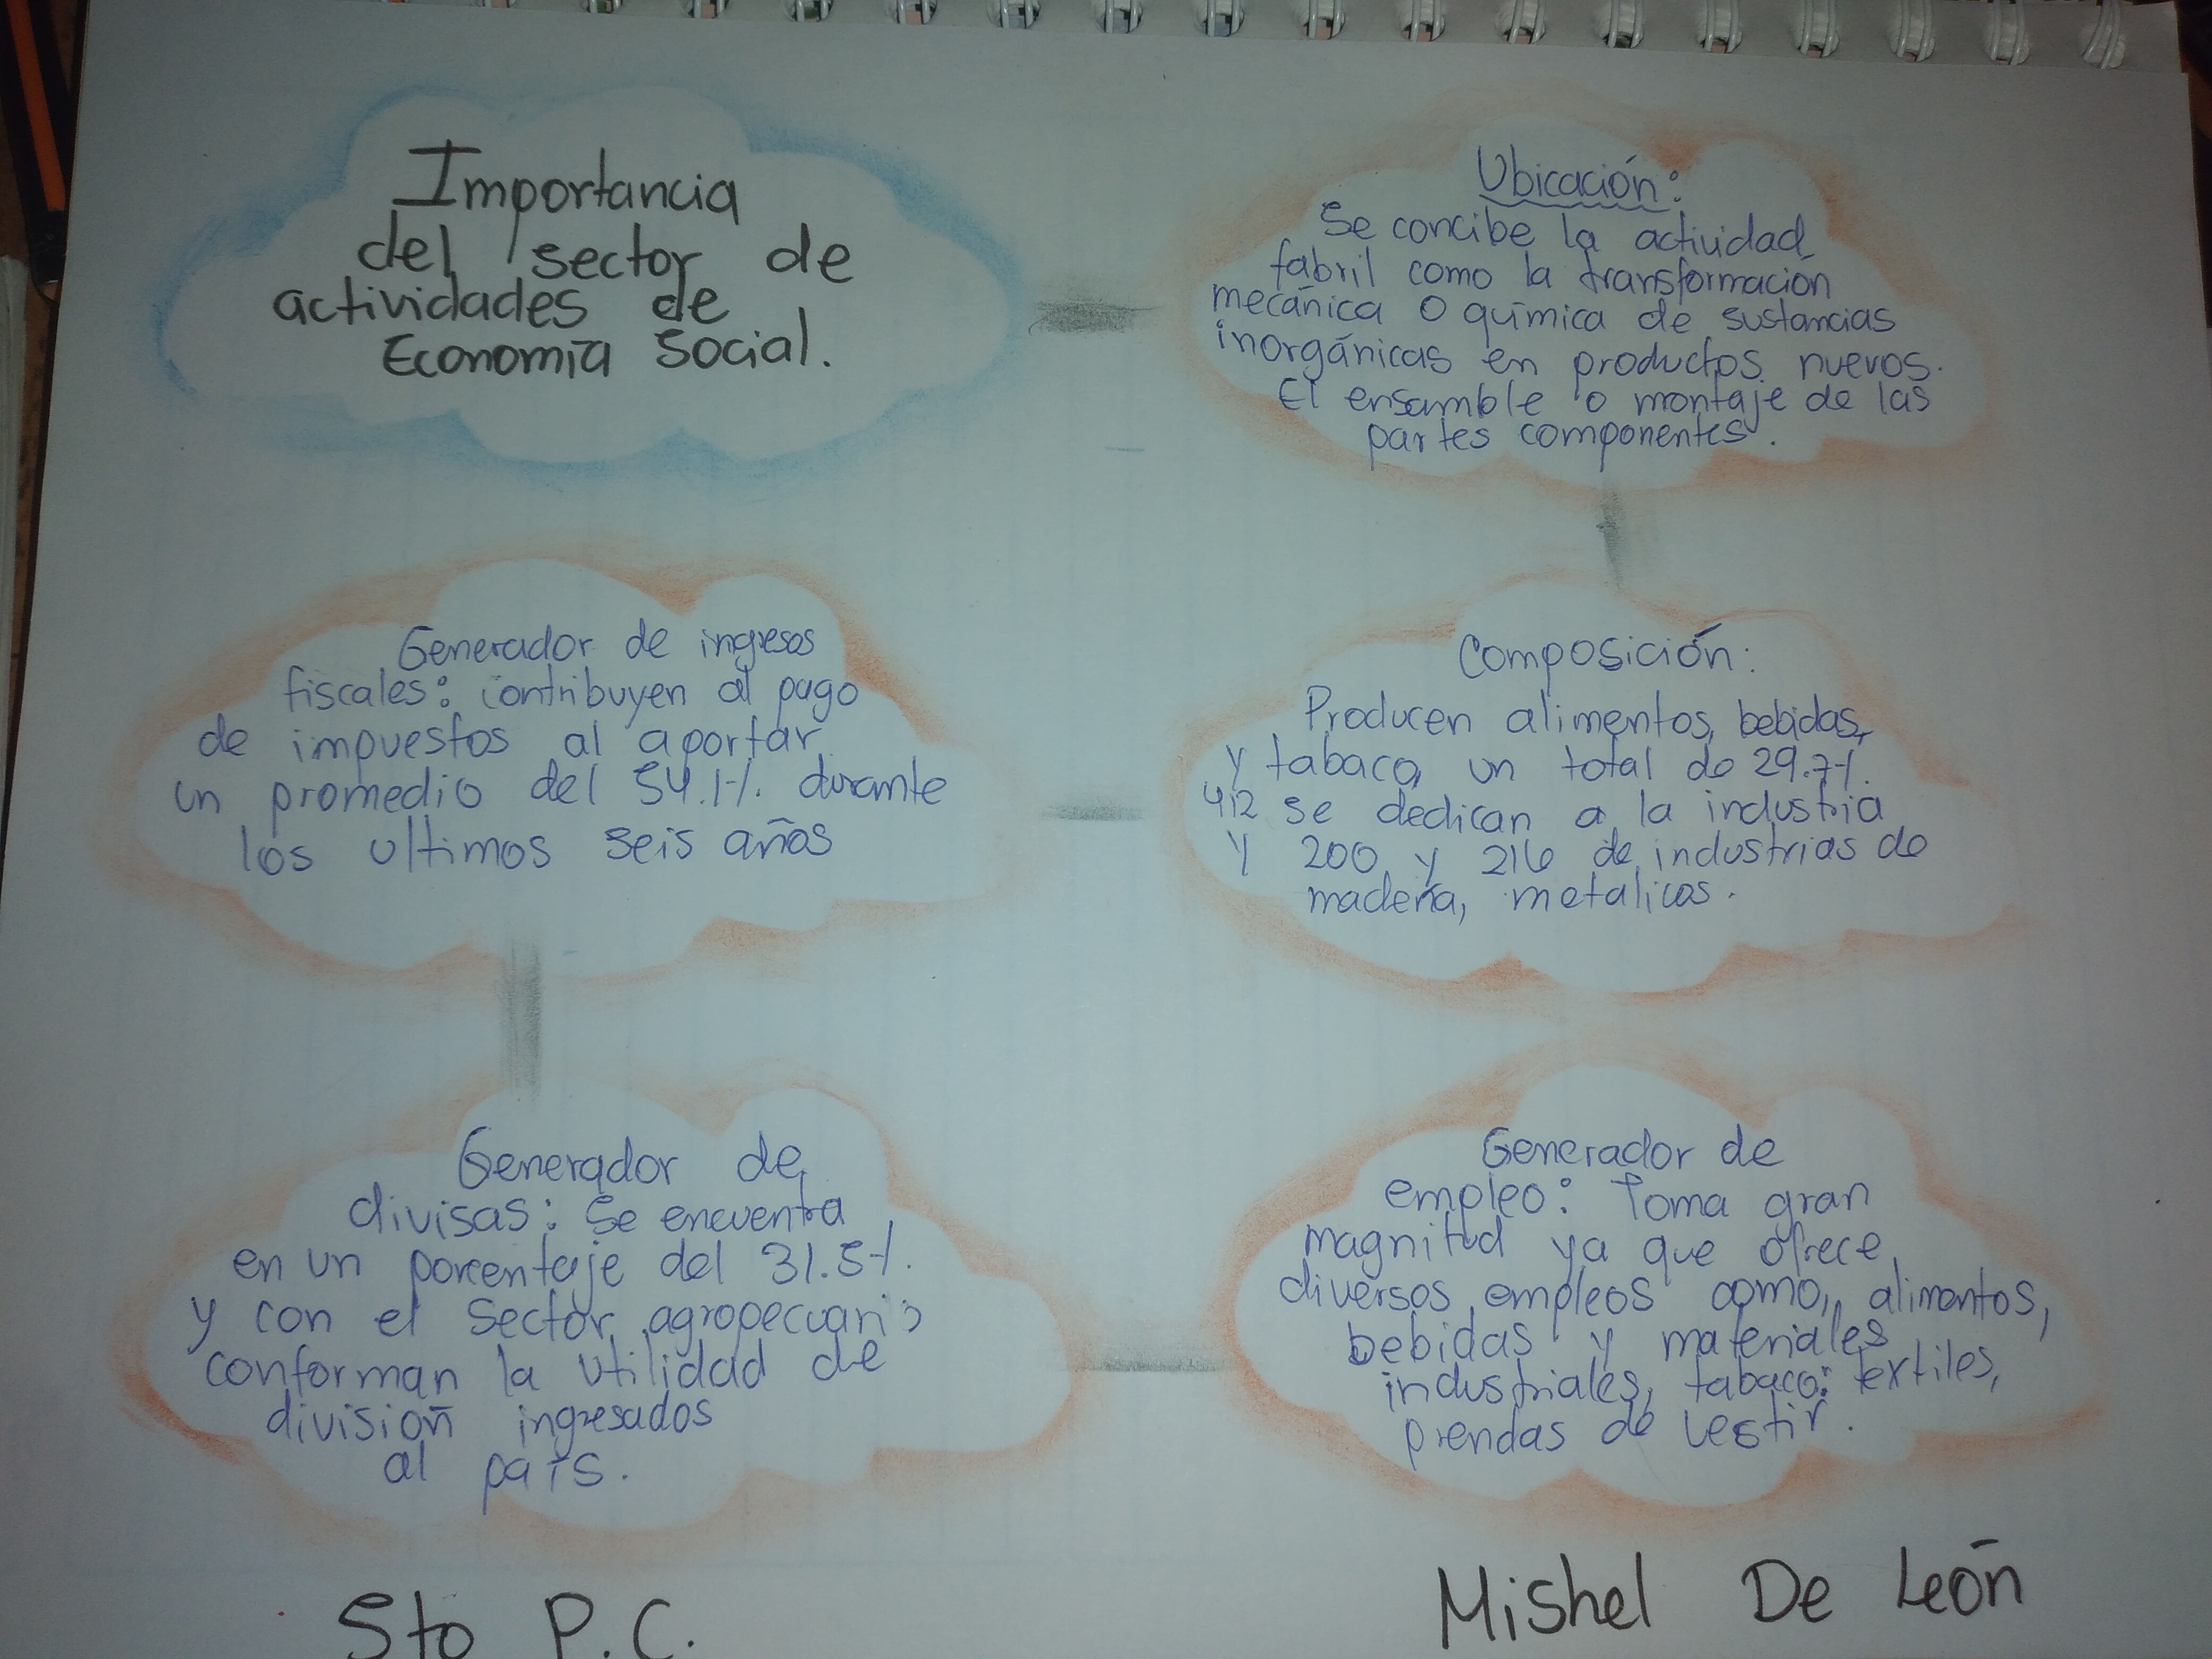 Importancia
del sector de
actividades de
Economía Social.
Ubicación:
Se concibe la actividad
fabril como la transformación
mecánica o química de sustancias
inorgánicas en productos nuevos.
El ensamble o montaje de las
partes componentes.
Composición:
Producen alimentos, bebidas,
y tabaco, un total de 29.7%.
412 se dedican a la industria
y 200 y 216 de industrias de
madera, metalicas.
Generador de ingresos
fiscales: contribuyen al pago
de impuestos al aportar
un promedio del 54.1%. durante
los ultimos seis años
Generador de
divisas: Se encuentra
en un porcentaje del 31.5%.
y con el Sector agropecuario
conforman la utilidad de
división ingresados
al país.
Generador de
empleo: Toma gran
magnitud ya que ofrece
diversos empleos como, alimentos,
bebidas y materiales
industriales, tabaco: textiles,
prendas de vestir.
5to P.C.
Mishel De León